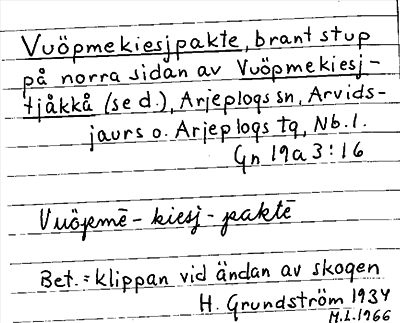 Vuöpmekiesjpakte, brant stup
på norra sidan av Vuöpmekiesj-
tjåkkå (se d.), Arjeplogs sn, Arvids-
jaurs o. Arjeplogs tg, Nb. l.
Gn 19a3:16
Vuöpmē-kiesj-paktē
Bet.: klippan vid ändan av skogen
H. Grundström 1934
M.L. 1966